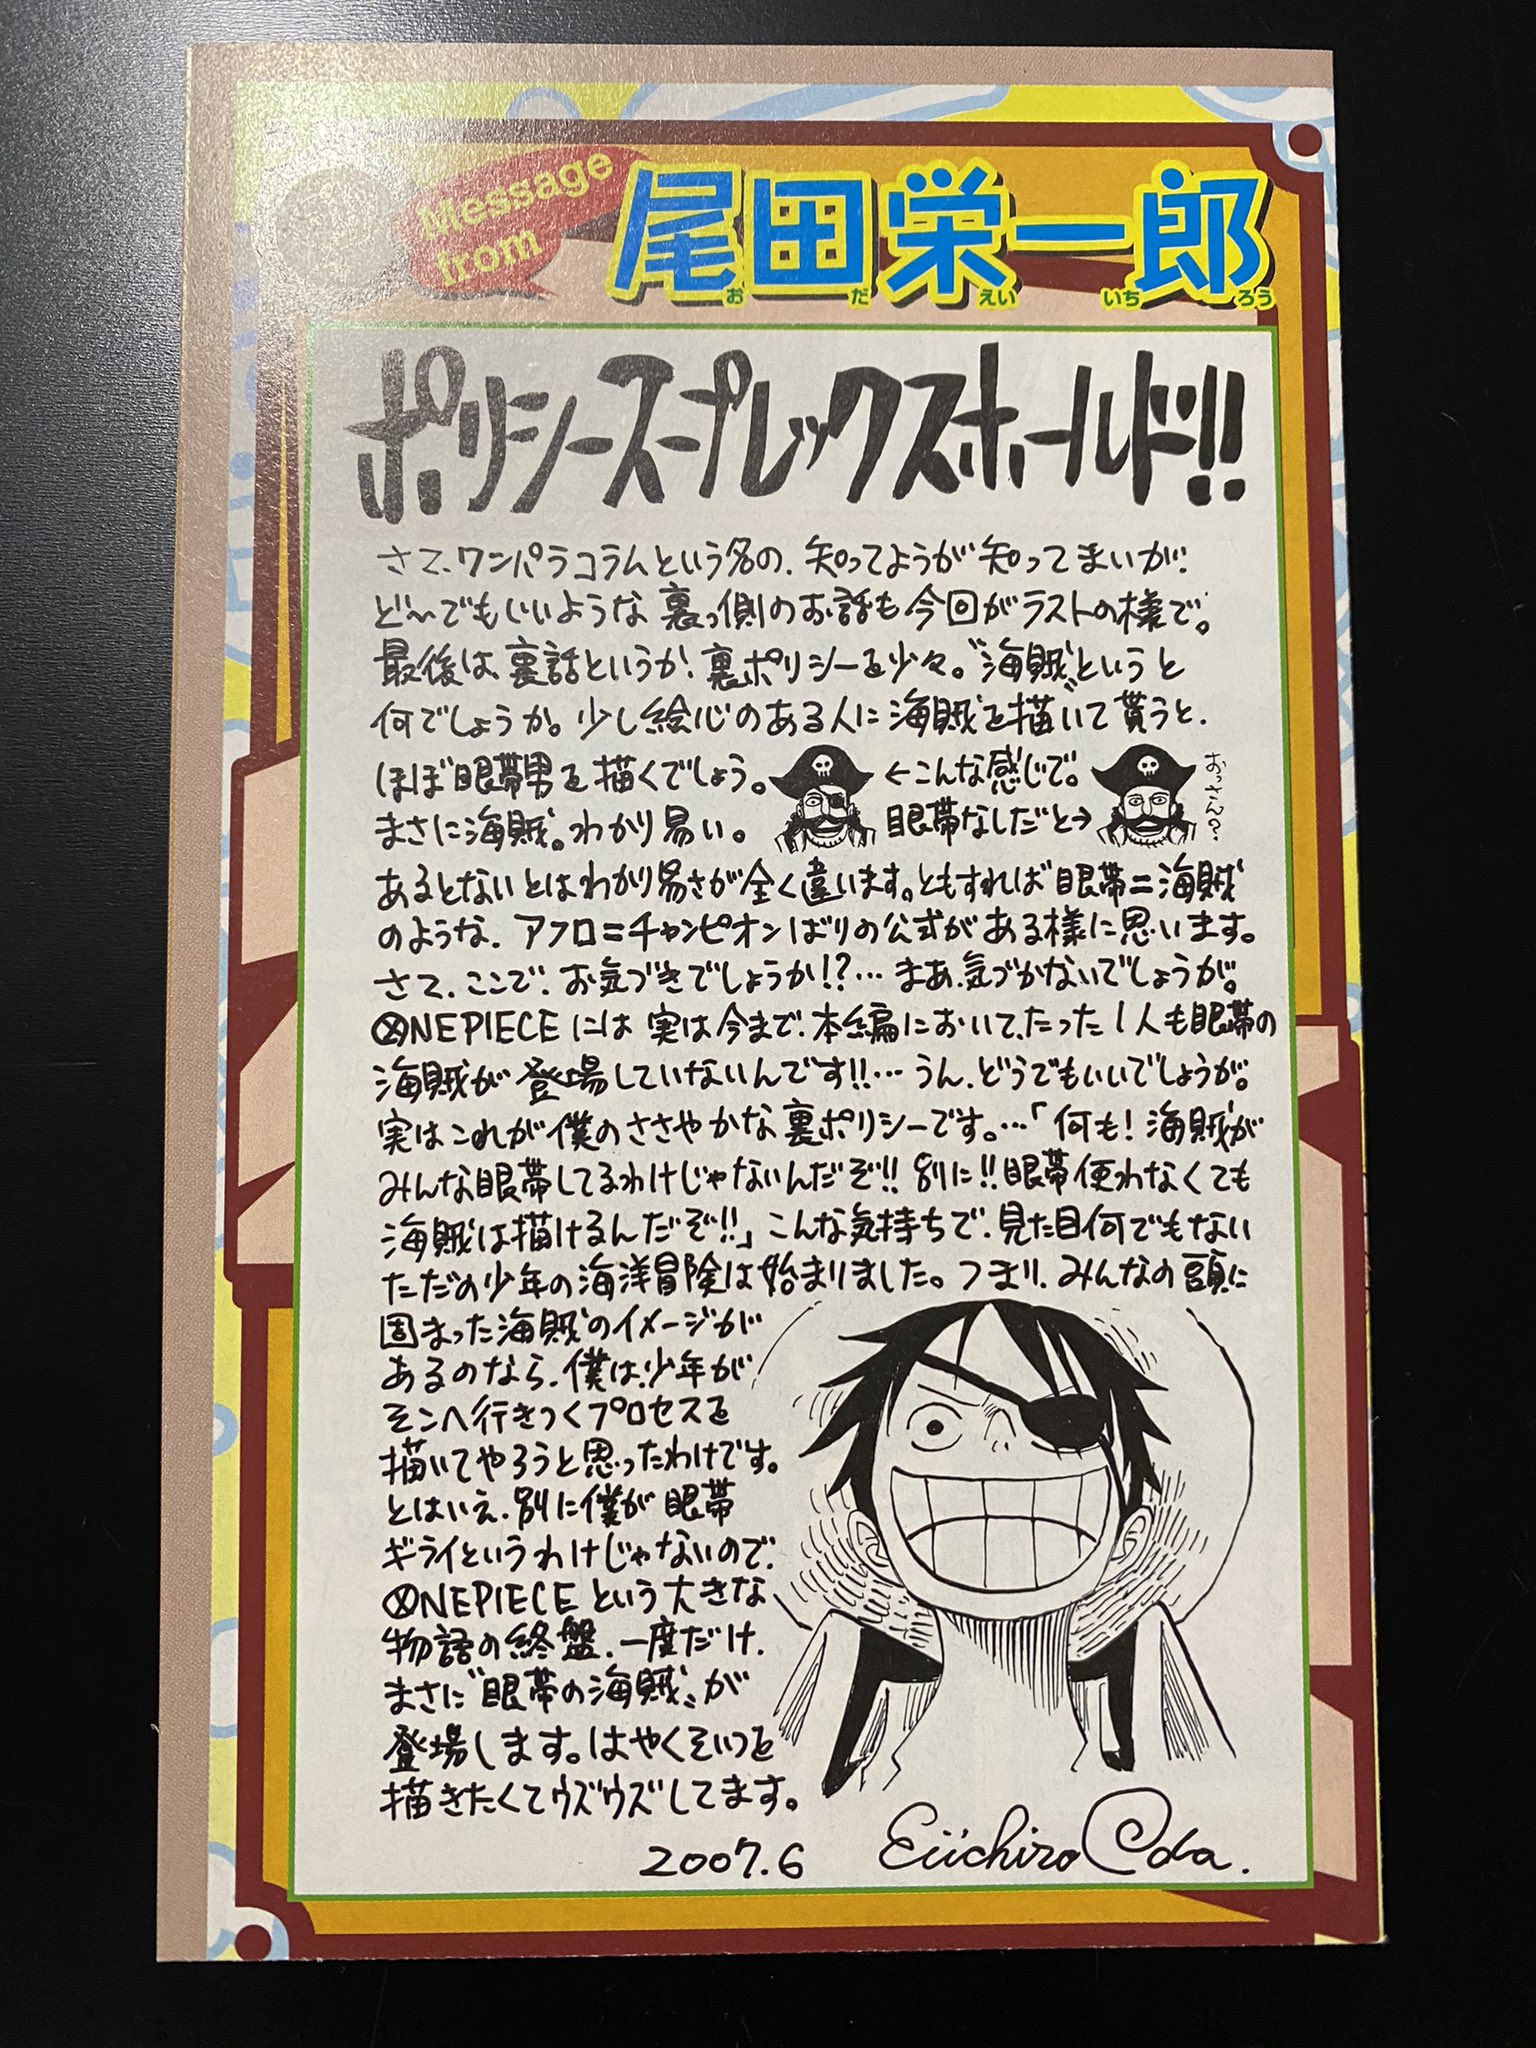 Message
from
尾田栄一郎
お だ えい いち ろう
ポリシースープレックスホールド!!
さて、ワンパラコラムという名の、知ってようが知ってまいが、
ど〜でもいいような裏っ側のお話も今回がラストの様で。
最後は、裏話というか、裏ポリシーを少々。〝海賊〟というと
何でしょうか。少し絵心のある人に海賊を描いて貰うと、
ほぼ眼帯男を描くでしょう。 ←こんな感じで。
おっさん?
まさに海賊。わかり易い。 眼帯なしだと→
あるとないとはわかり易さが全く違います。ともすれば眼帯=海賊
のような、アフロ=チャンピオンばりの公式がある様に思います。
さて、ここで、お気づきでしょうか!?…まあ、気づかないでしょうが。
ONEPIECEには実は今まで、本編において、たった1人も眼帯の
海賊が登場していないんです!!…うん、どうでもいいでしょうが。
実はこれが僕のささやかな裏ポリシーです。…「何も!海賊が
みんな眼帯してるわけじゃないんだぞ!!別に!!眼帯使わなくても
海賊は描けるんだぞ!!」こんな気持ちで、見た目何でもない
ただの少年の海洋冒険は始まりました。つまり、みんなの頭に
固まった海賊のイメージが
あるのなら、僕は、少年が
そこへ行きつくプロセスを
描いてやろうと思ったわけです。
とはいえ、別に僕が眼帯
ギライというわけじゃないので、
ONEPIECEという大きな
物語の終盤、一度だけ、
まさに〝眼帯の海賊〟が
登場します。はやくそいつを
描きたくてウズウズしてます。
2007.6
Eiichiro Oda.